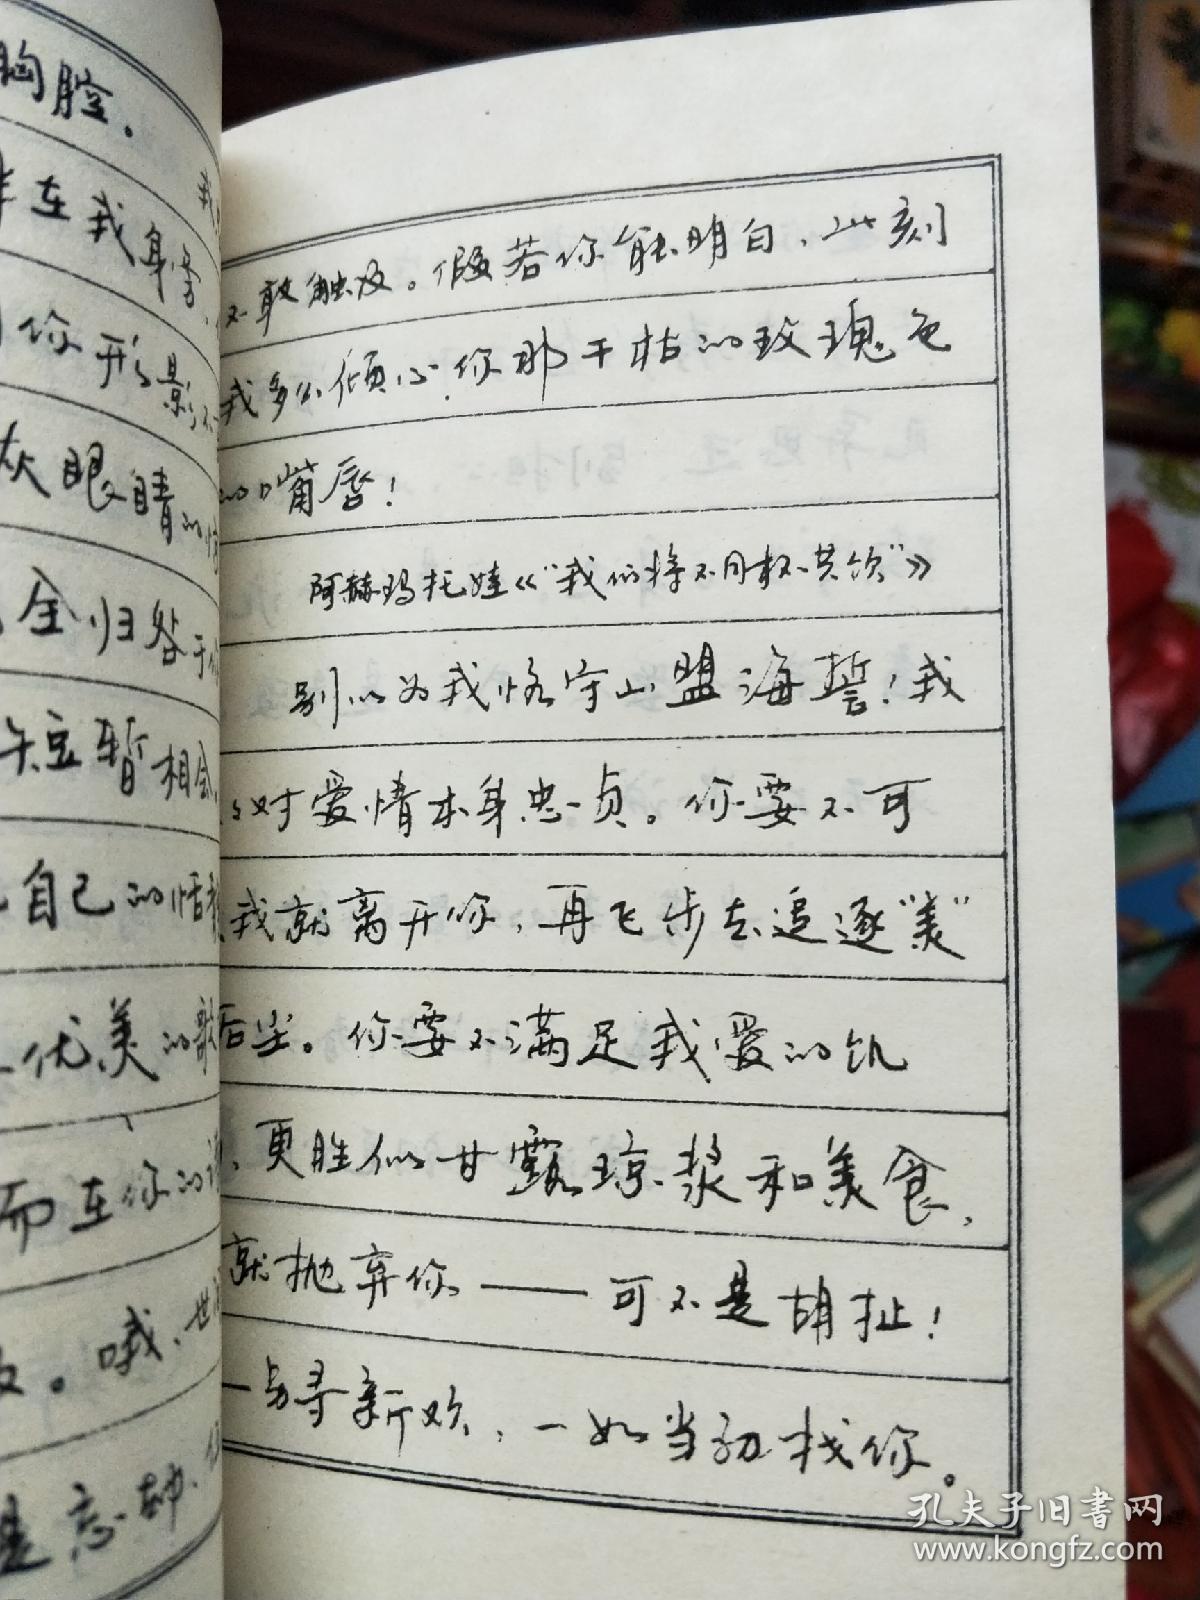 胸腔。
在我身旁,
你形影不
灰眼睛的
全归咎于
短暂相会,
自己的恬
优美的歌
而在你的
。哦,世
是忘却,
不敢触及。假若你能明白,此刻
我多么倾心你那干枯的玫瑰色
的嘴唇!
阿赫玛托娃《“我们将不同杯共饮”》
别以为我恪守山盟海誓!我
对爱情本身忠贞。你要不可
我就离开你,再飞步去追逐“美”
后尘。你要不满足我爱的饥
,更胜似甘露琼浆和美食,
就抛弃你——可不是胡扯!
—另寻新欢,一如当初找你。
孔夫子旧书网
www.kongfz.com